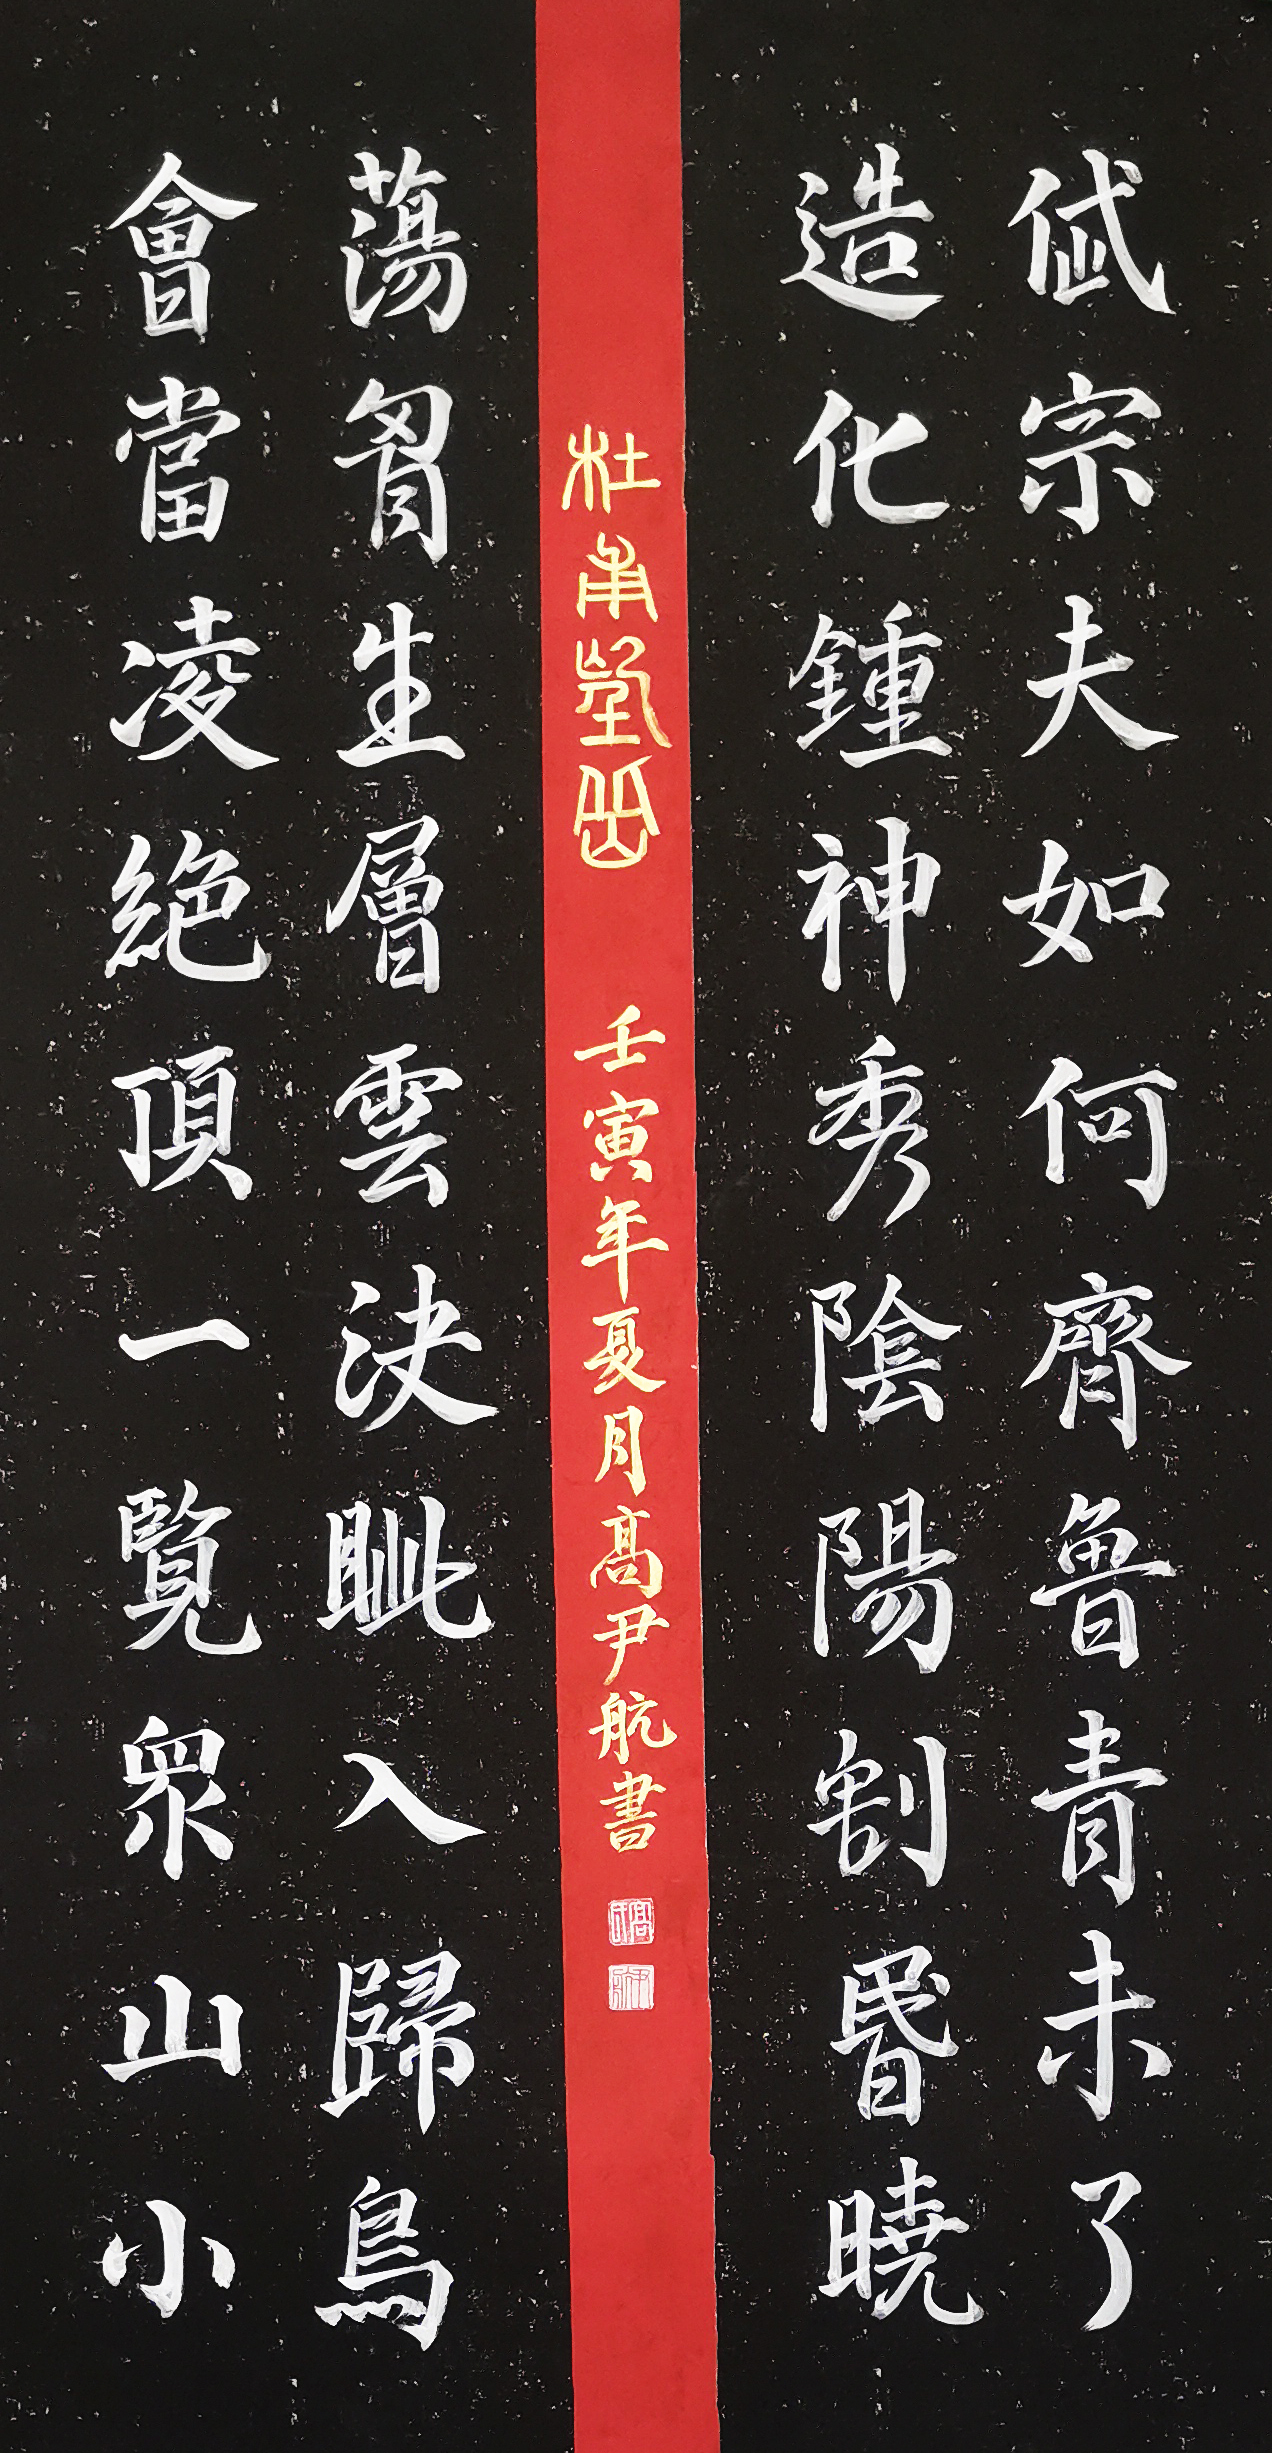 岱宗夫如何齊魯青未了
造化鍾神秀陰陽割昬曉
杜甫望岳
壬寅年夏月高尹航書
蕩胷生層雲決眦入歸鳥
會當凌絕頂一覽眾山小